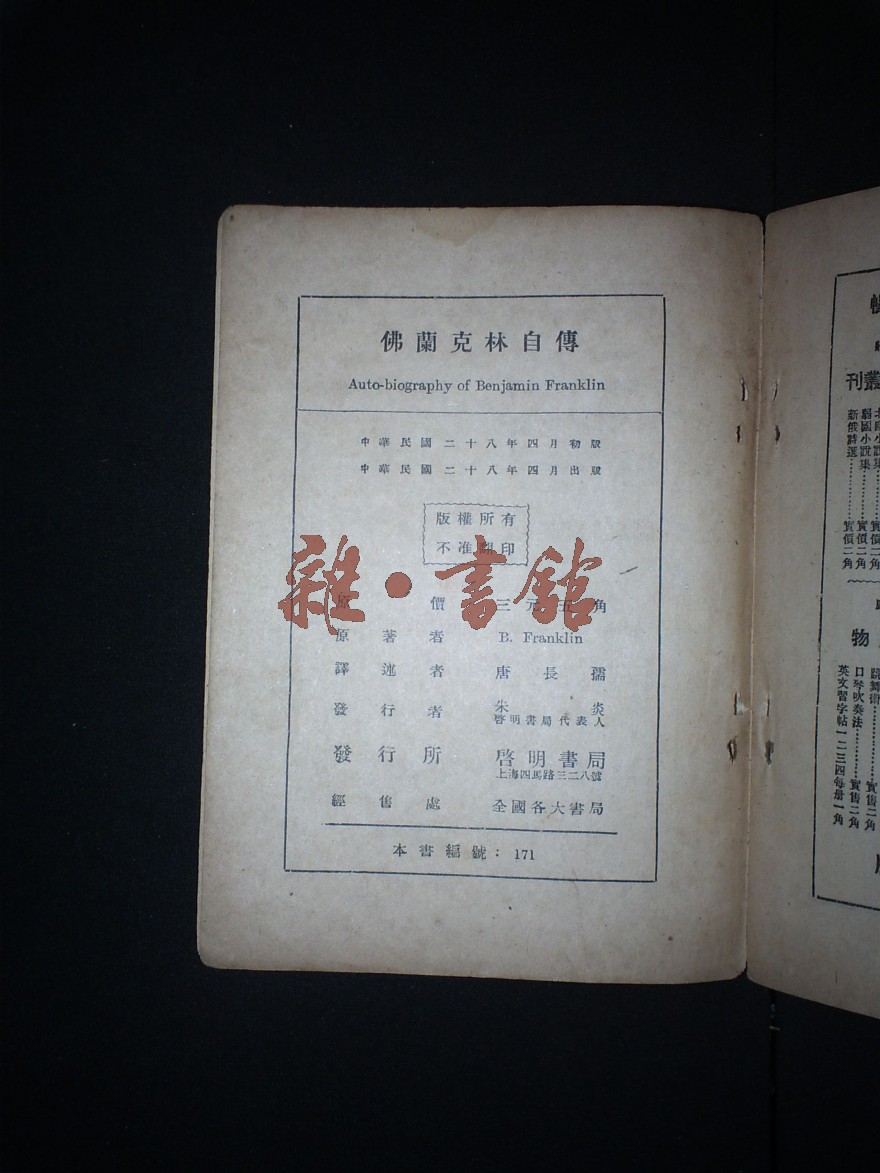 佛蘭克林自傳
Auto-biography of Benjamin Franklin
中華民國二十八年四月初版
中華民國二十八年四月出版
版權所有
不准翻印
雜·書館
原價 三元五角
原著者 B. Franklin
譯述者 唐長孺
發行者 朱炎
啓明書局代表人
發行所 啓明書局
上海四馬路三二八號
經售處 全國各大書局
本書編號：171
叢刊
弱國小說集………實價二角
新俄詩選………實價二角
物
口琴吹奏法………實售二角
英文習字帖一二三四每册一角